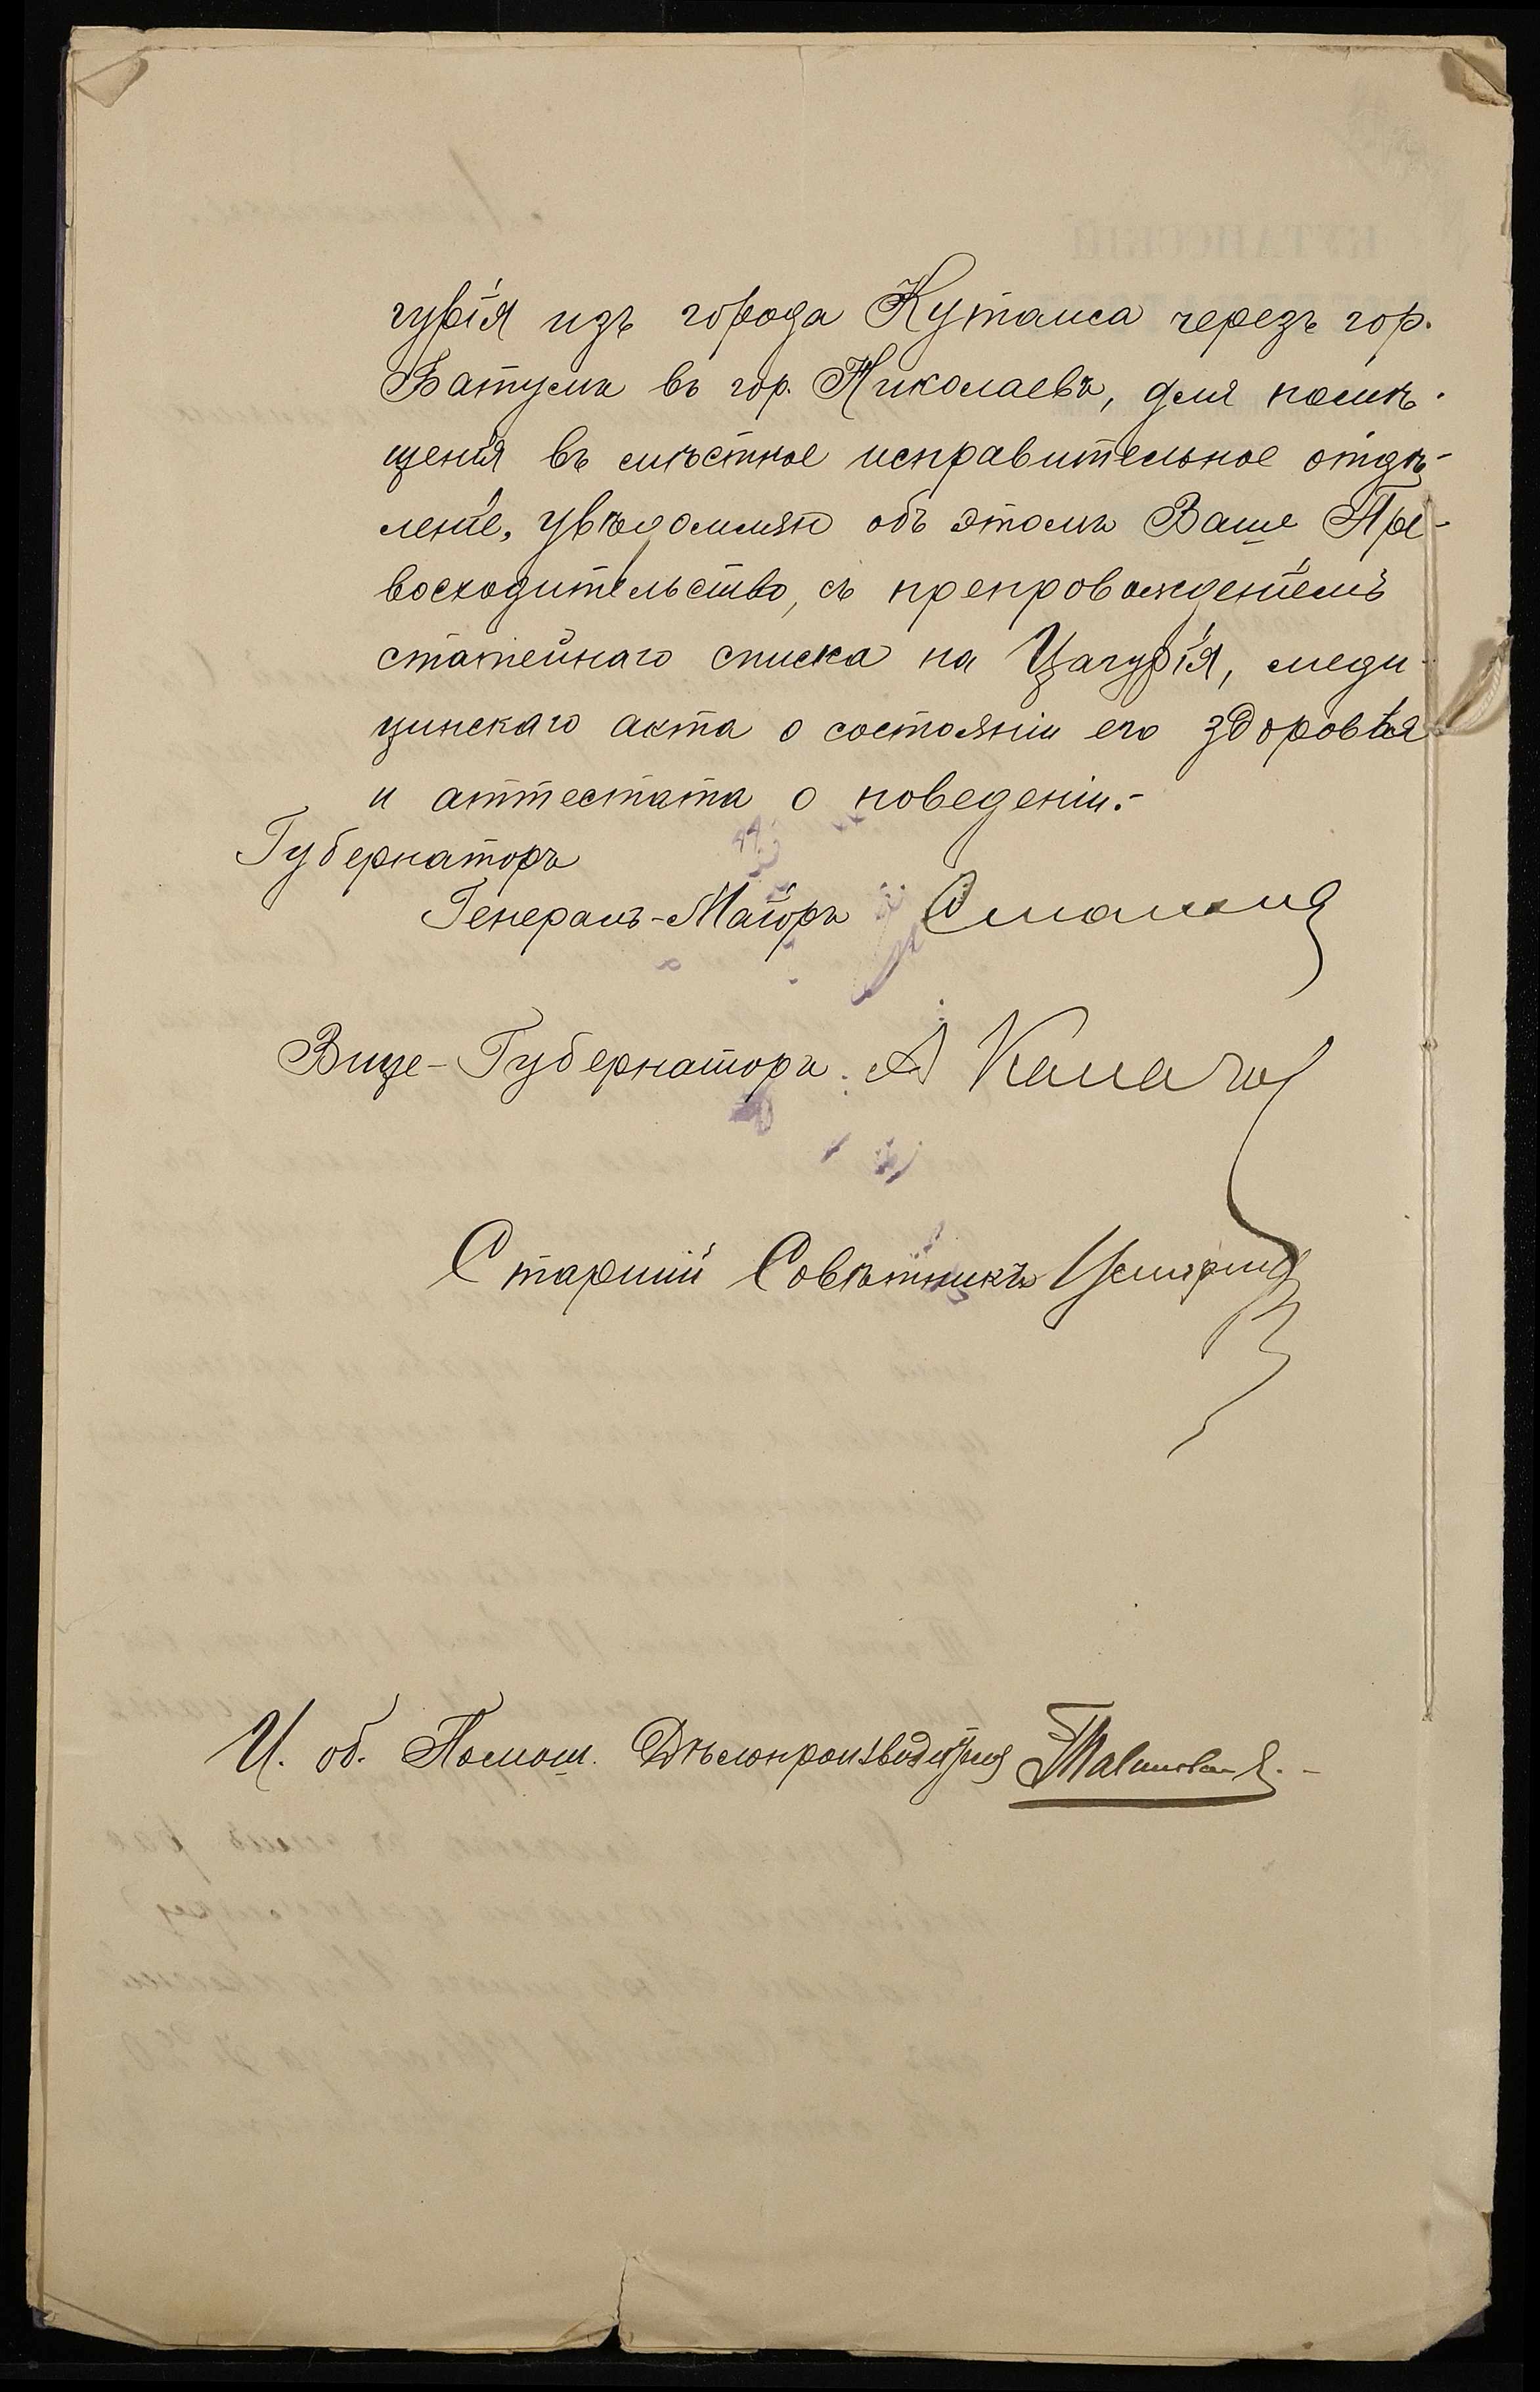 гурія изъ города Кутаиса черезъ гор.
Батумъ въ гор. Николаевъ, для помѣ-
щенія въ мѣстное исправительное отдѣ-
леніе, увѣдомляю объ этомъ Ваше Пре-
восходительство, съ препровожденіемъ
статейнаго списка на Цагурія, меди-
цинскаго акта о состояніи его здоровья
и аттестата о поведеніи.-
Губернаторъ
Генералъ-Маіоръ
Вице-Губернаторъ. А
Старшій Совѣтникъ
И. об. Помощ. Дѣлопроизводителя